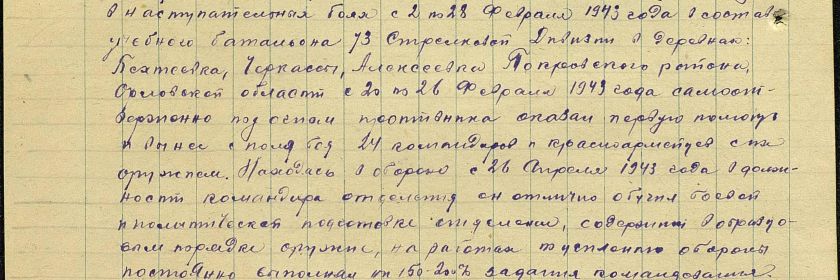 в наступательных боях с 2 по 28 Февраля 1943 года в составе
учебного батальона 73 Стрелковой Дивизии в деревнях:
Бехтеевка, Черкассы, Алексеевка Покровского района,
Орловской области с 20 по 26 Февраля 1943 года самоот-
верженно под огнем противника оказал первую помощь
и вынес с поля боя 24 командиров и красноармейцев с их
оружием. Находясь в обороне с 26 Апреля 1943 года в долж-
ности командира отделения он отлично обучил боевой
и политической подготовке отделение, содержит в образцо-
вом порядке оружие, на работах по усилению обороны
постоянно выполнял на 150-200% задания командования.